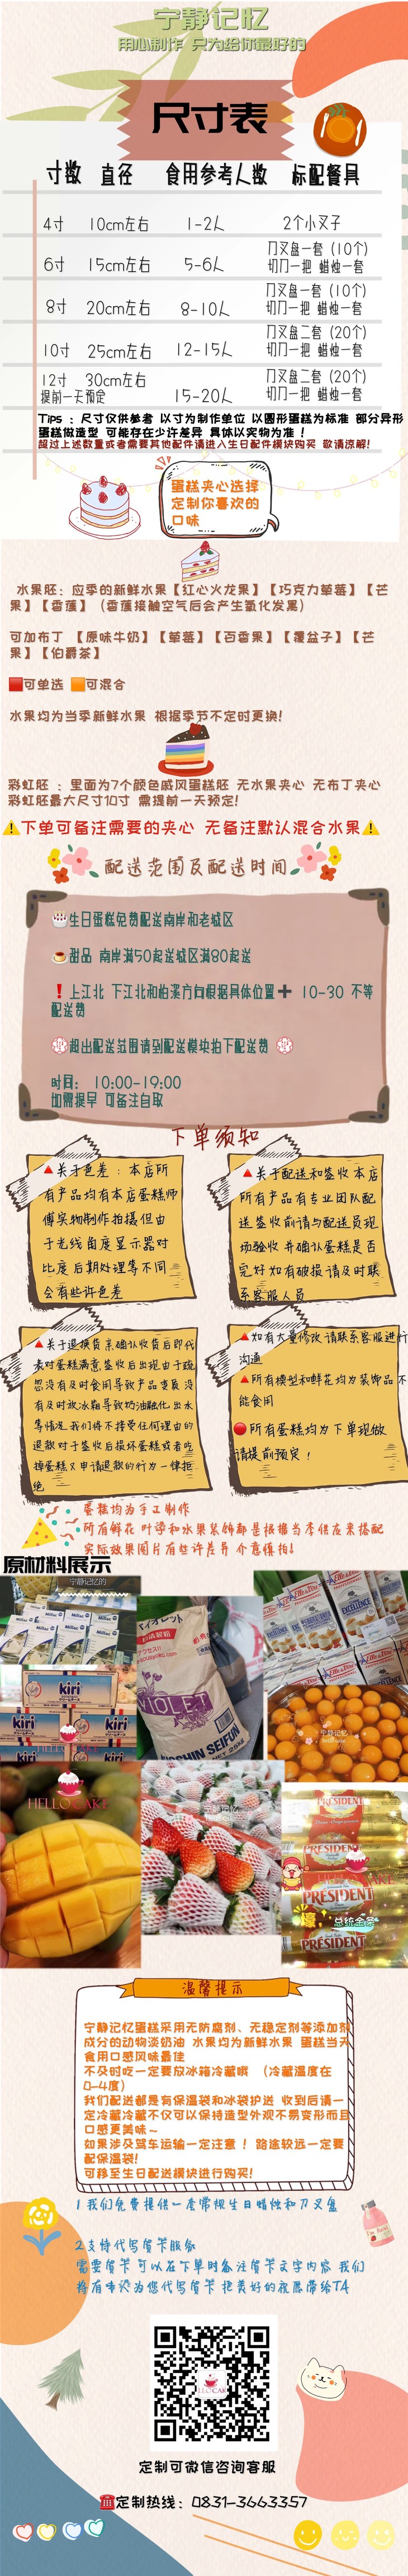 宁静记忆
用心制作 只为给你最好的
尺寸表
寸数 直径 食用参考人数 标配餐具
4寸 10cm左右 1-2人 2个小叉子
6寸 15cm左右 5-6人 刀叉盘一套（10个）
切刀一把 蜡烛一套
8寸 20cm左右 8-10人 刀叉盘一套（10个）
切刀一把 蜡烛一套
10寸 25cm左右 12-15人 刀叉盘二套（20个）
切刀一把 蜡烛一套
12寸 30cm左右 15-20人 刀叉盘二套（20个）
提前一天预定 切刀一把 蜡烛一套
Tips：尺寸仅供参考 以寸为制作单位 以圆形蛋糕为标准 部分异形
蛋糕做造型 可能存在少许差异 具体以实物为准！
超过上述数量或者需要其他配件请进入生日配件模块购买 敬请谅解!
蛋糕夹心选择
定制你喜欢的
口味
水果胚：应季的新鲜水果【红心火龙果】【巧克力草莓】【芒
果】【香蕉】（香蕉接触空气后会产生氧化发黑）
可加布丁 【原味牛奶】【草莓】【百香果】【覆盆子】【芒
果】【伯爵茶】
🟥可单选 🟧可混合
水果均为当季新鲜水果 根据季节不定时更换!
彩虹胚 ：里面为7个颜色戚风蛋糕胚 无水果夹心 无布丁夹心
彩虹胚最大尺寸10寸 需提前一天预定!
⚠️下单可备注需要的夹心 无备注默认混合水果⚠️
配送范围及配送时间
🎂生日蛋糕免费配送南岸和老城区
甜品 南岸满50起送城区满80起送
❗上江北 下江北和柏溪方向根据具体位置➕ 10-30 不等
配送费
💮超出配送范围请到配送模块拍下配送费 💮
时间： 10:00-19:00
如需提早 可备注自取
下单须知
🔺关于色差：本店所
有产品均有本店蛋糕师
傅实物制作拍摄但由
于光线角度显示器对
比度后期处理等不同
会有些许色差
🔺关于配送和签收本店
所有产品有专业团队配
送签收前请与配送员现
场验收并确认蛋糕是否
完好如有破损请及时联
系客服人员
🔺关于退换货亲确认收货后即代
表对蛋糕满意签收后出现由于疏
忽没有及时食用导致产品变质没
有及时放冰箱导致奶油融化出水
等情况我们将不接受任何理由的
退款对于签收后损坏蛋糕或者吃
掉蛋糕又申请退款的行为一律拒
绝
🔺如有大量修改请联系客服进行
沟通
🔺所有模型和鲜花均为装饰品不
能食用
🔴所有蛋糕均为下单现做
请提前预定！
蛋糕均为手工制作
所有鲜花 叶子和水果装饰都是根据当季供应来搭配
实际效果图片有些许差异 介意慎拍!
原材料展示
宁静记忆的
kiri
kiri
kiri
HELLO CAKE
バイオレット
VIOLET
NISSHIN SEIFUN
EXCELLENCE
宁静记忆
HELLO CAKE
PRESIDENT
PRESIDENT
PRESIDENT
PRESIDENT
壕
总统金条
温馨提示
宁静记忆蛋糕采用无防腐剂、无稳定剂等添加剂
成分的动物淡奶油 水果均为新鲜水果 蛋糕当天
食用口感风味最佳
不及时吃一定要放冰箱冷藏哦 （冷藏温度在
0-4度）
我们配送都是有保温袋和冰袋护送 收到后请一
定冷藏冷藏不仅可以保持造型外观不易变形而且
口感更美味~
如果涉及驾车运输一定注意！路途较远一定要
配保温袋!
可移至生日配送模块进行购买!
1 我们免费提供一套常规生日蜡烛和刀叉盘
2 支持代写贺卡服务
需要贺卡 可以在下单时备注贺卡文字内容 我们
将有专人为您代写贺卡 把美好的祝愿带给TA
定制可微信咨询客服
☎️定制热线：0831-3663357